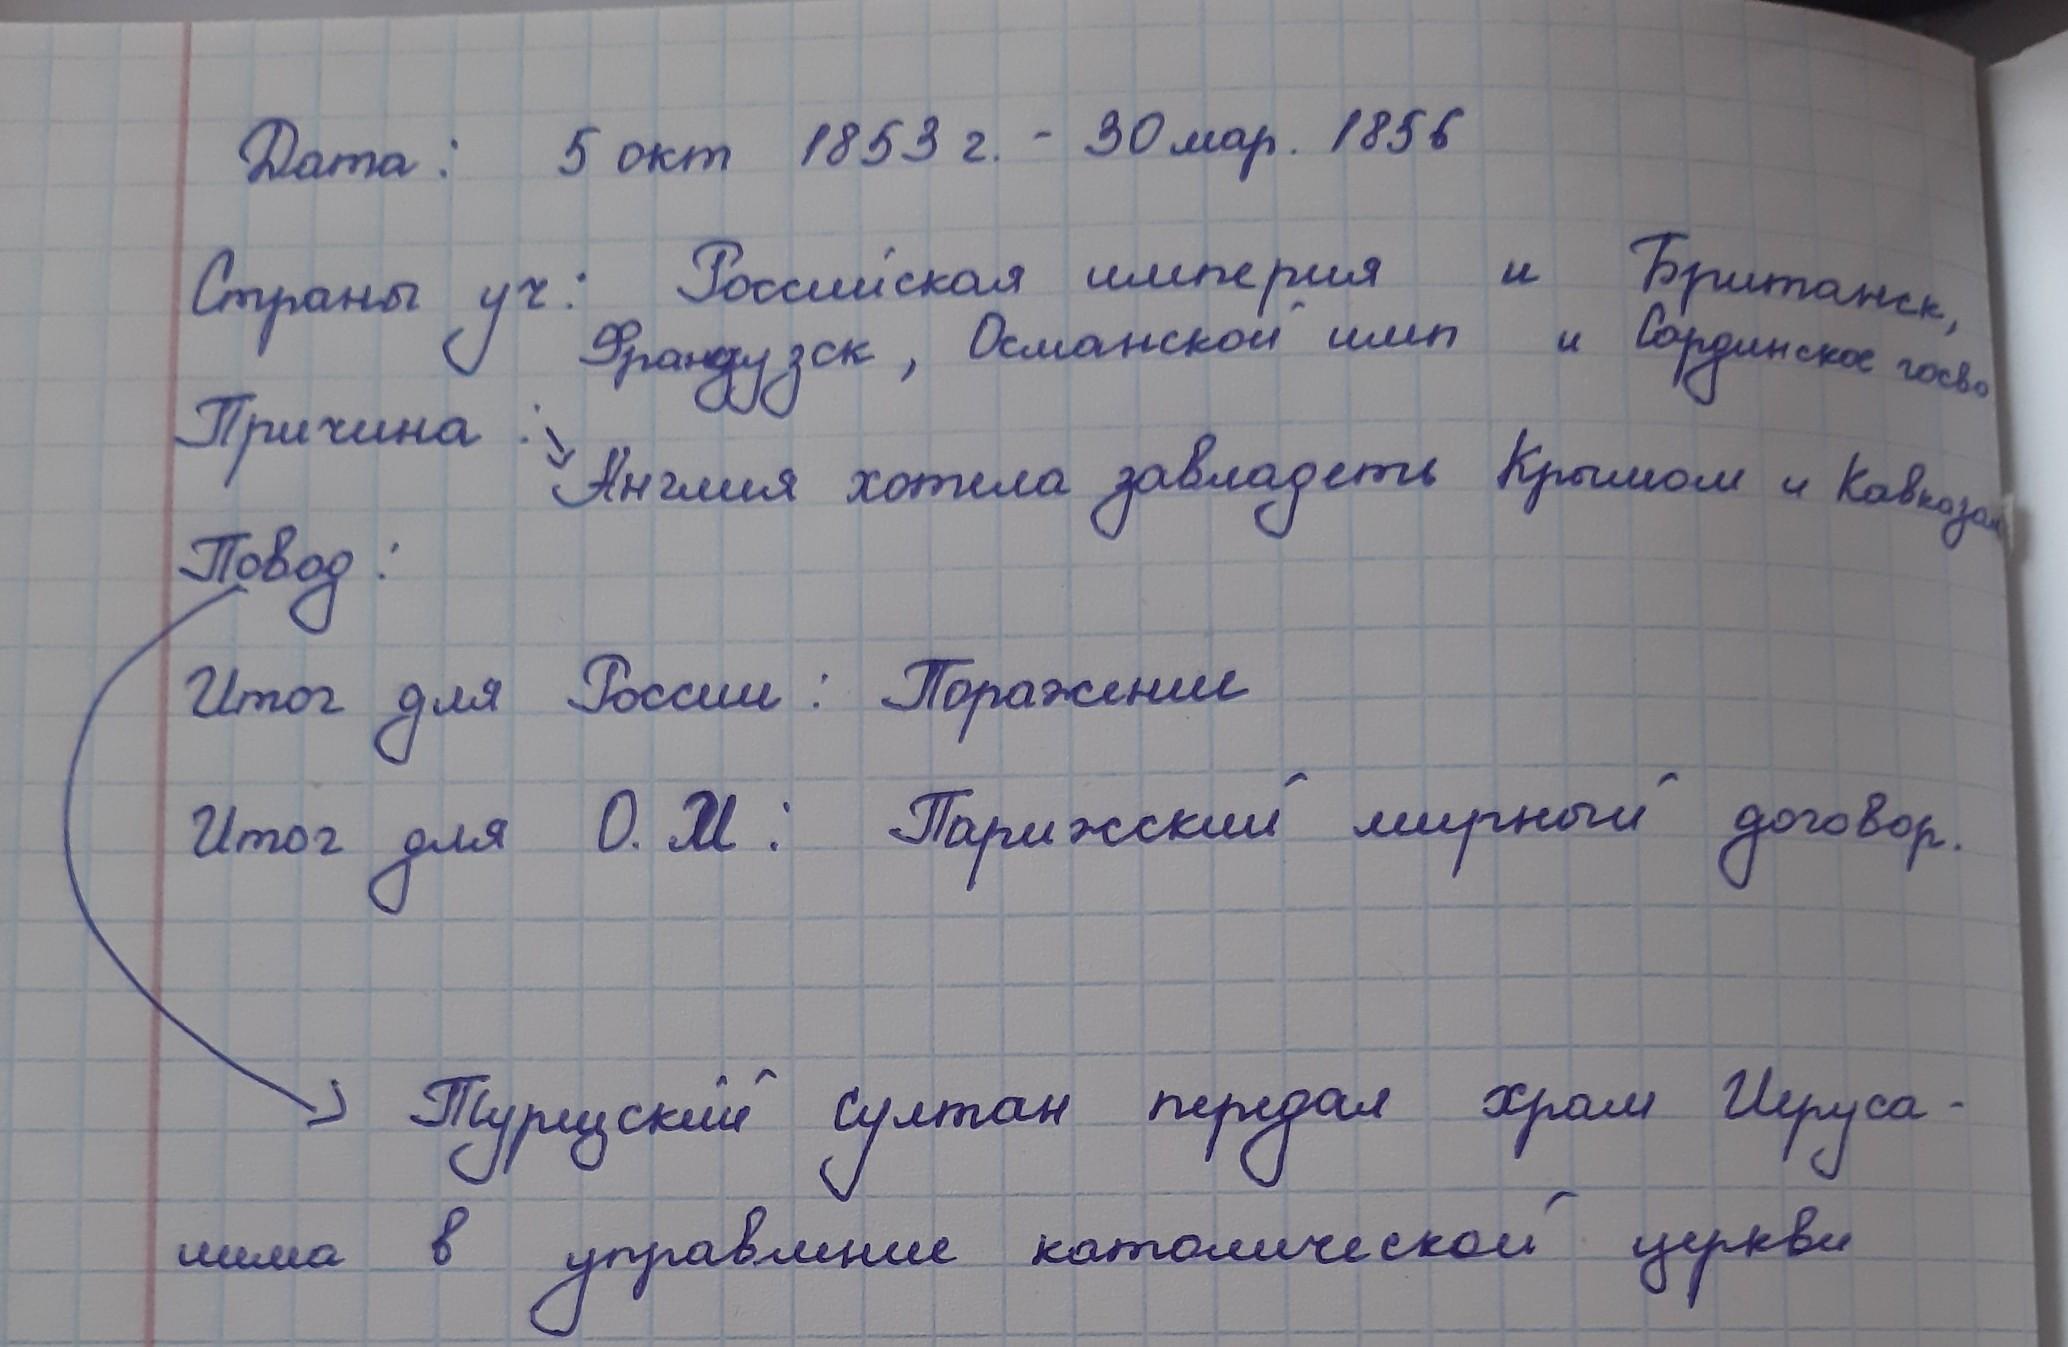 Дата: 5 окт 1853 г. - 30 мар. 1856
Страны уч: Российская империя и Британск,
Французск, Османской имп и Сардинское госво
Причина:
Англия хотела завладеть Крымом и Кавказом
Повод:
Итог для России: Поражение
Итог для О. И: Парижский мирный договор.
Турецский султан передал храм Иеруса-
лима в управление католической церкви